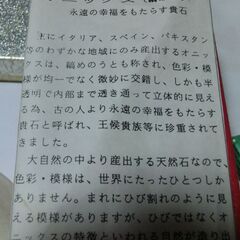 永遠の幸福をもたらす貴石
主にイタリア、スペイン、パキスタン
のわずかな地域にのみ産出するオニッ
クスは、縞めのうとも称され、色彩・模
様が均一でなく微妙に交錯し、しかも半
透明で内部まで透き通って立体的に見え
る為、古の人より永遠の幸福をもたらす
貴石と呼ばれ、王侯貴族等に珍重されて
きました。
大自然の中より産出する天然石なので、
色彩・模様は、世界にたったひとつしか
ありません。まれにひび割れのように見
える模様がありますが、ひびではなくオ
ニックスの特徴といわれる自然が造り